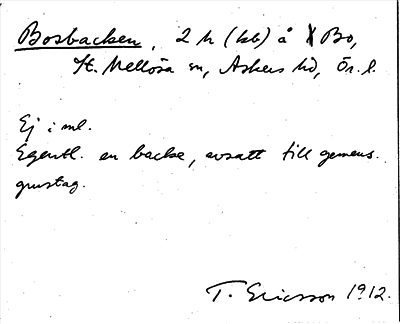 Bosbacken, 2 h (bb) å Bo,
St. Mellösa sn, Askers hd, Ör. l.
Ej i ml.
Egentl. en backe, avsatt till gemens.
grustag.
T. Ericsson 1912.